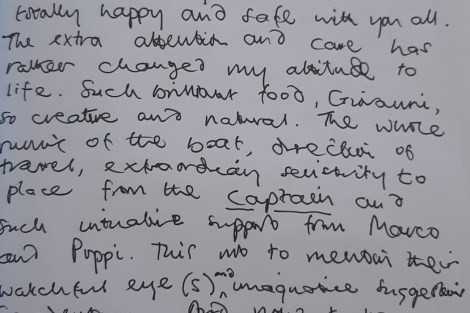 totally happy and safe with you all.
The extra attention and care has
rather changed my attitude to
life. Such brilliant food, Giovanni,
so creative and natural. The whole
of the boat, direction of
travel, extraordinary sensitivity to
place from the Captain and
such intuitive support from Marco
and Puppi. This not to mention their
watchful eye(s) and imaginative suggestions